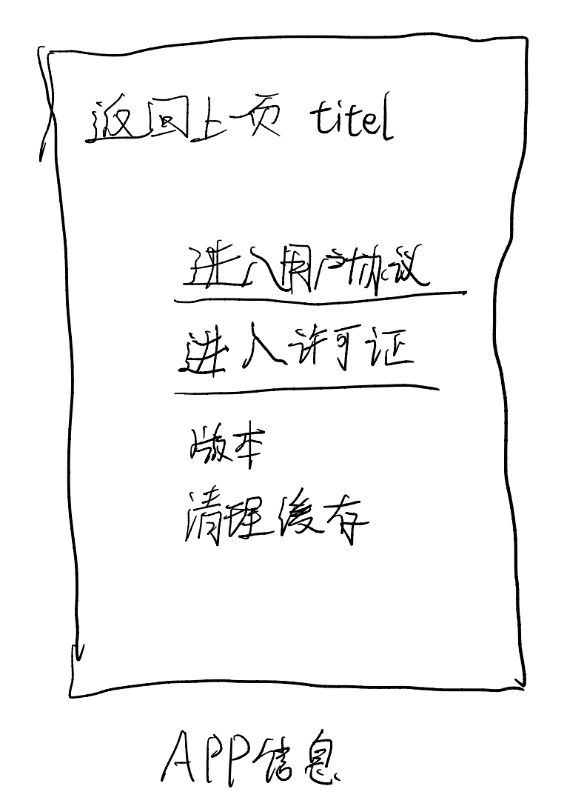 返回上一页 titel
进入用户协议
进入许可证
版本
清理缓存
APP信息